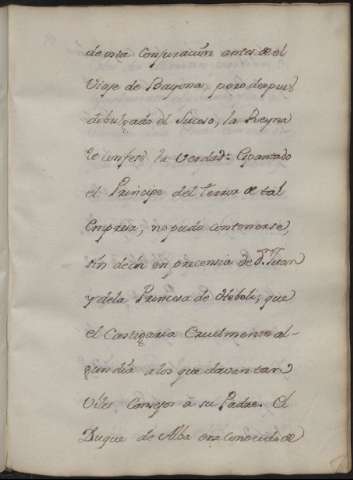 de esta Conjuracion antes de el
Viaje de Bayona, pero despues
dibulgado el Suceso, la Reyna
le confesó la Verdad. Espantado
el Principe del terror de tal
Empresa, no pudo contenerse,
sin decir en precencia de Dn. Juan
y dela Princesa de Heboli, que
el Castigaria Cruelmente al-
gun dia a los que davan tan
Viles Consejos à su Padre. El
Duque de Alba era Conocido de